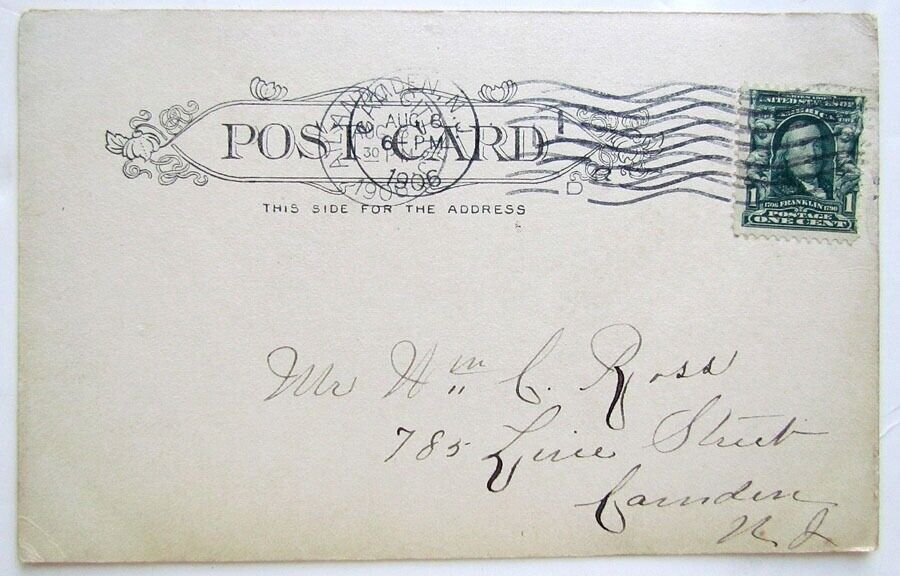 POST CARD
THIS SIDE FOR THE ADDRESS
CAMDEN, N.J.
AUG 6
6 PM
1906
UNITED STATES OF
1706 FRANKLIN 1790
1 POSTAGE 1
ONE CENT
D
Mr Wm C. Ross
785 Line Street
Camden
N J